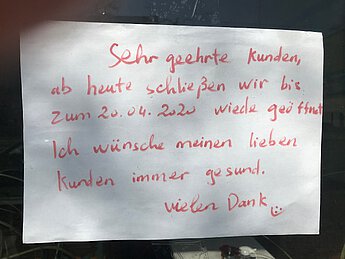 Sehr geehrte Kunden,
ab heute schließen wir bis
zum 20.04.2020 wiede geöffnet
Ich wünsche meinen lieben
Kunden immer gesund.
vielen Dank